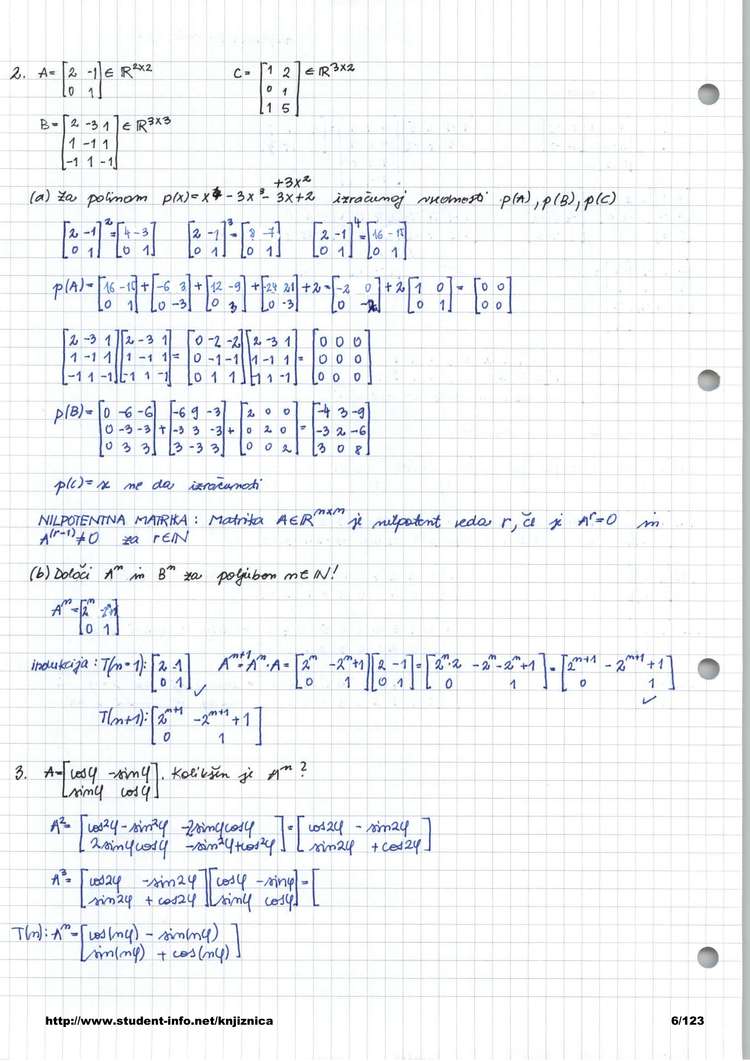 2. A = [2 -1; 0 1] ∈ ℝ^{2×2}   C = [1 2; 0 1; 1 5] ∈ ℝ^{3×2}
B = [2 -3 1; 1 -1 1; -1 1 -1] ∈ ℝ^{3×3}
+3x²
(a) Za polinom p(x) = x⁴ - 3x³ - 3x + 2 izračunaj vrednosti p(A), p(B), p(C)
[2 -1; 0 1]² = [4 -3; 0 1]   [2 -1; 0 1]³ = [8 -7; 0 1]   [2 -1; 0 1]⁴ = [16 -15; 0 1]
p(A) = [16 -15; 0 1] + [-6 3; 0 -3] + [12 -9; 0 3] + [-24 21; 0 -3] + 2 = [-2 0; 0 -2] + 2 [1 0; 0 1] = [0 0; 0 0]
[2 -3 1; 1 -1 1; -1 1 -1] [2 -3 1; 1 -1 1; -1 1 -1] = [0 -2 -2; 0 -1 -1; 0 1 1] [2 -3 1; 1 -1 1; -1 1 -1] = [0 0 0; 0 0 0; 0 0 0]
p(B) = [0 -6 -6; 0 -3 -3; 0 3 3] + [-6 9 -3; -3 3 -3; 3 -3 3] + [2 0 0; 0 2 0; 0 0 2] = [-4 3 -9; -3 2 -6; 3 0 8]
p(C) = se ne da izračunati
NILPOTENTNA MATRIKA : Matrika A∈ℝ^{n×n} je nilpotent reda r, če je A^r = 0 in
A^{(r-1)} ≠ 0 za r∈ℕ
(b) Določi Aⁿ in Bⁿ za poljuben n∈ℕ!
Aⁿ = [2ⁿ ; 0 1]
indukcija : T(n=1): [2 1; 0 1] ✓   A^{n+1} = Aⁿ·A = [2ⁿ -2ⁿ+1; 0 1] [2 -1; 0 1] = [2ⁿ·2 -2ⁿ-2ⁿ+1; 0 1] = [2^{n+1} -2^{n+1}+1; 0 1] ✓
T(n+1): [2^{n+1} -2^{n+1}+1; 0 1]
3. A = [cosφ -sinφ; sinφ cosφ]. Kolikšen je Aⁿ?
A² = [cos²φ-sin²φ -2sinφcosφ; 2sinφcosφ -sin²φ+cos²φ] = [cos2φ -sin2φ; sin2φ +cos2φ]
A³ = [cos2φ -sin2φ; sin2φ +cos2φ] [cosφ -sinφ; sinφ cosφ] = [
T(n): Aⁿ = [cos(nφ) -sin(nφ); sin(nφ) +cos(nφ)]
http://www.student-info.net/knjiznica   6/123